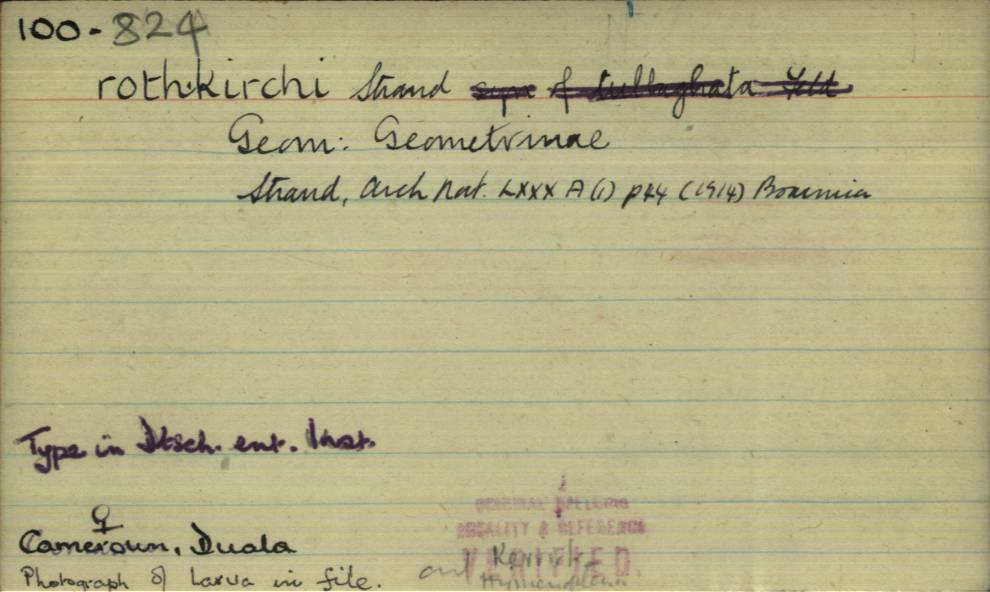 100-824
rothkirchi Strand
Geom: Geometrinae
Strand, Arch Nat. LXXX A (1) p44 (1914) Boarmia
Type in Dtsch. ent. Inst.
♀
Cameroun, Duala
Photograph of Larva in file.
ORIGINAL SPELLING
LOCALITY & REFERENCE
VERIFIED.